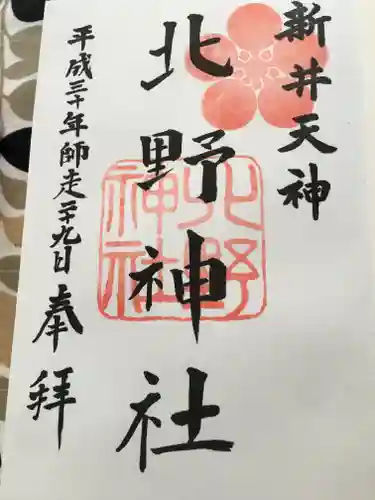 新井天神
北野神社
北野神社
平成三十年師走二十九日
奉拝